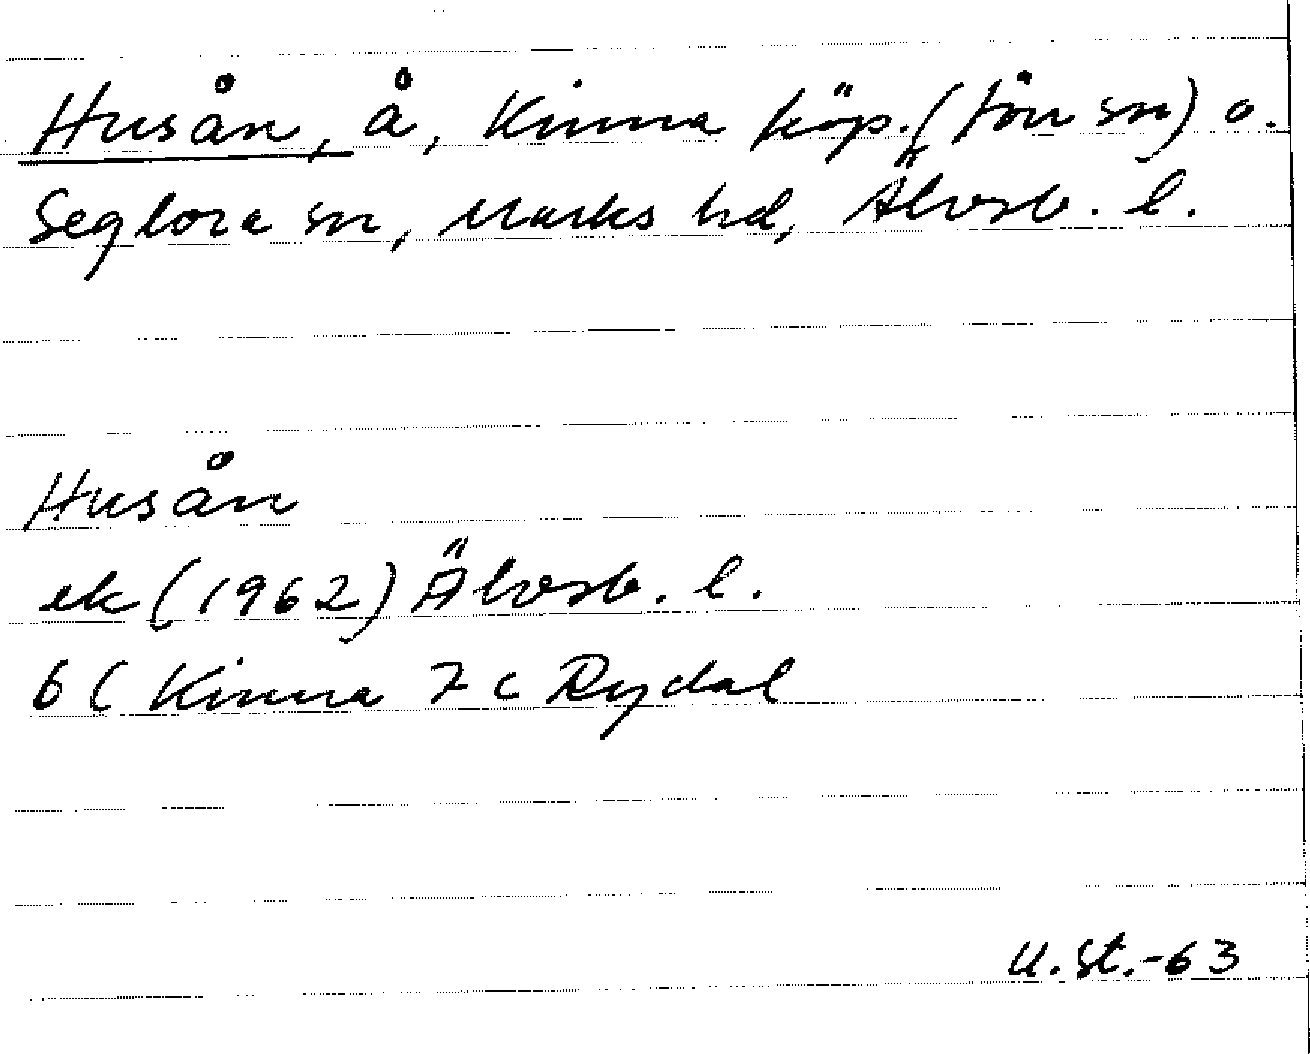 Husån, å, Kinna köp. (förr sn) o.
Seglora sn, Marks hd, Älvsb. l.
Husån
ek (1962) Älvsb. l.
6 C Kinna 7 C Rydal
U. St. -63